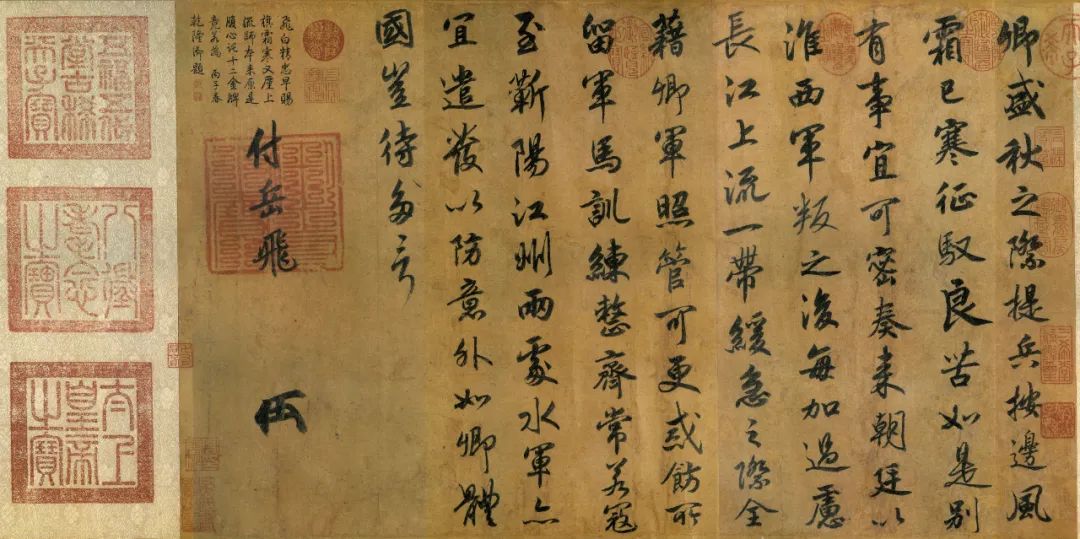 卿盛秋之際提兵按邊風
霜已寒征馭良苦如是别
有事宜可密奏来朝廷以
淮西軍叛之後每加過慮
長江上流一帶緩急之際全
藉卿軍照管可更戒飭所
留軍馬訓練整齊常若寇
至蘄陽江州兩處水軍亦
宜遣發以防意外如卿體
國豈待多言
付岳飛
飛白精忠早賜
旗霜寒又廑上
流師本来原是
腹心託十二金牌
竟若為 丙子春
乾隆御題
五福五代
堂古稀
天子寶
八徵
耄念
之寶
太上
皇帝
之寶